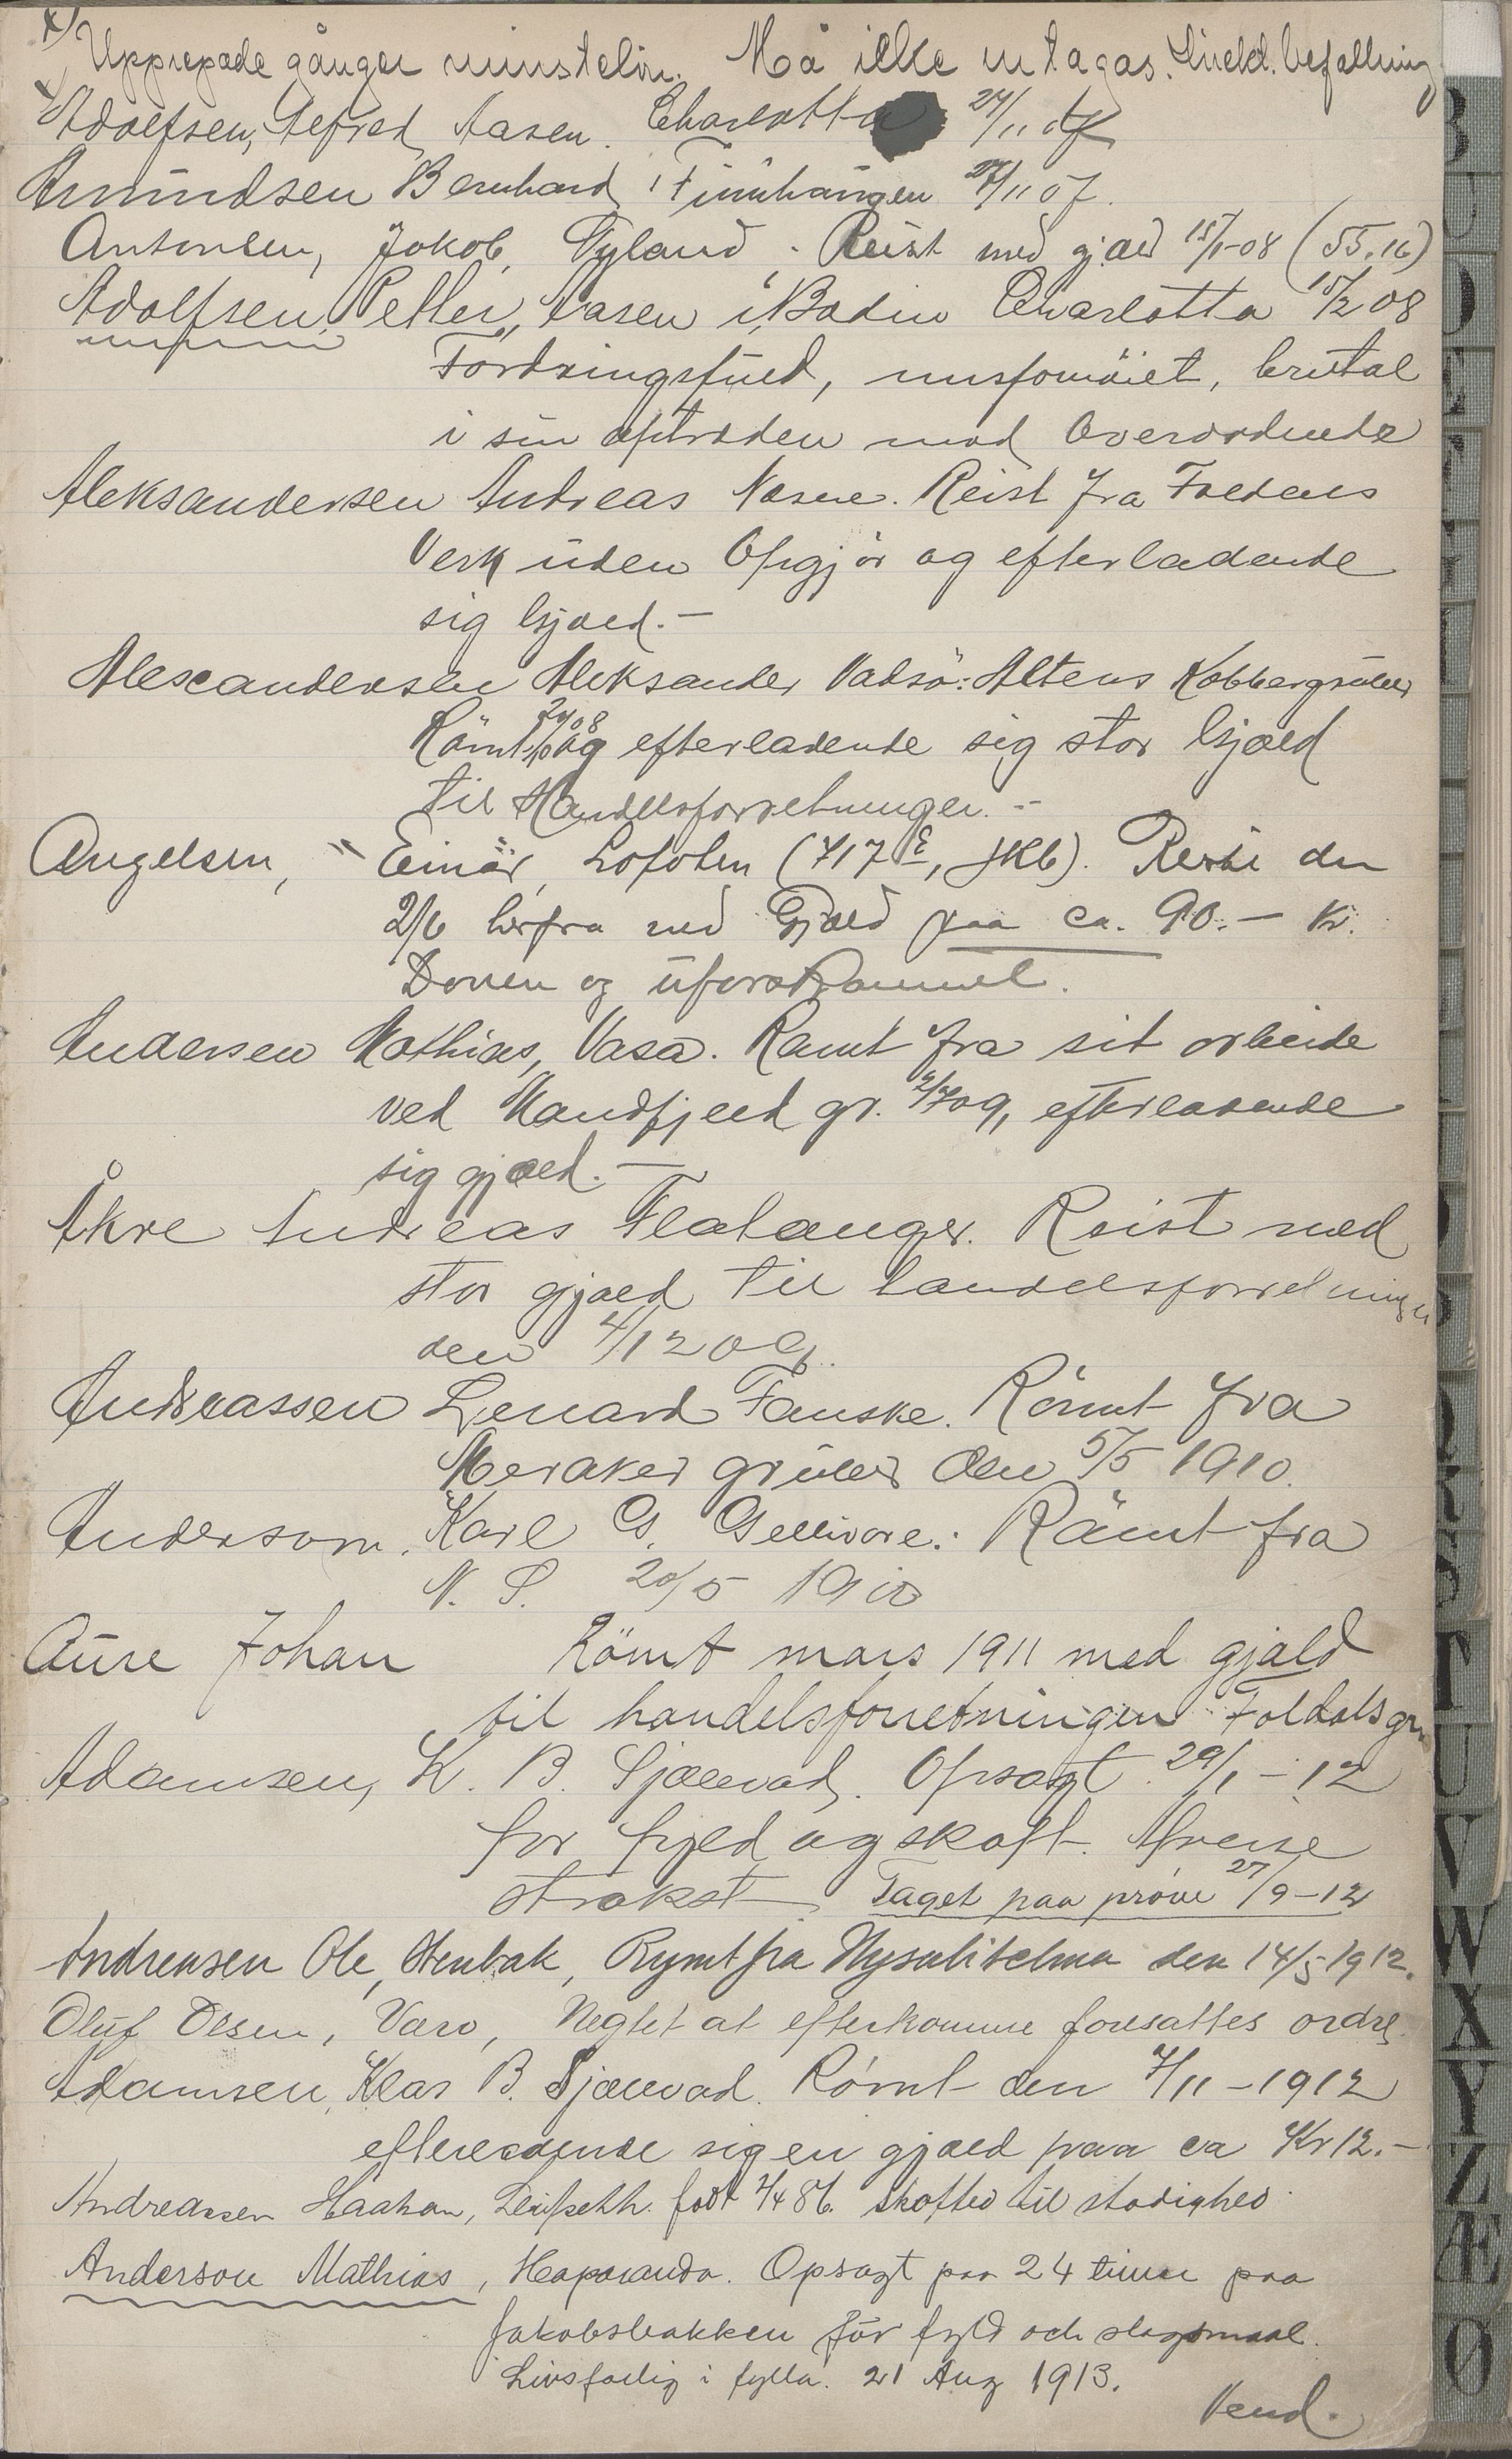 x) Upprepade gånger minstelön. Må ikke intagas. befallning
x Adolfsen, Alfred, Aasen. Charlotta 24/11 07
Amundsen Bernhard, Finnhaugen 27/11 07.
Antonsen, Jakob, Tyland. Reist med gjæld 15/1-08 (55.16)
Adolfsen, Petter, Aasen i Bodin Charlotta 15/2 08
Fordringsfuld, misfornöiet, brutal
i sin optræden mod Overordnede
Aleksandersen Andreas Næsne. Reist fra Foldens
Verk uden Opgjör og efterladende
sig Gjæld.-
Alexandersen Aleksander Vadsö: Altens Kobbergruber
Römt og efterladende sig stor Gjæld
til Handelsforretningen.-
Angelsen, Einar, Lofoten (717 E, JKb). Reiste den
2/6 herfra med Gjæld paa ca. 90.- Kr.
Doven og uforskammet.
Andersen Mathias, Vasa. Römt fra sit arbeide
ved Mandfjeld gr. 09, efterladende
sig gjæld.-
Åkre Andreas Flatanger. Reist med
stor gjæld til handelsforretningen
den 4/12 09.
Andreassen Lenard Fauske. Römt fra
Meraker gruber den 5/5 1910.
Anderson, Karl G. Gellivare. Römt fra
N. S. 20/5 1910
Aure Johan Römt mars 1911 med gjæld
til handelsforretningen Foldals gr.
Adamsen, K. B. Sjælevad. Opsagt 29/1-12
for fyld og skoft. Afreise
strakst Taget paa prøve 27/9-12
Andreasen Ole, Stenbak, Rymt fra Nysulitelma den 14/5 1912.
Oluf Olsen, Værø, Negtet at efterkomme foresattes ordre.
Adamsen, Klas B. Sjælevad. Rømt den 7/11-1912
efterladende sig en gjæld paa ca Kr 12.-
Andreassen Haakon, født 2/4 86. skofted til stadighed.
Anderson Mathias, Haparanda. Opsagt paa 24 timer paa
Jakobsbakken för fyld och slagsmaal.
Livsfarlig i fylla. 21 Aug 1913.
Vend.
B
D
E
T
U
V
W
X
Y
Z
Æ
Ø